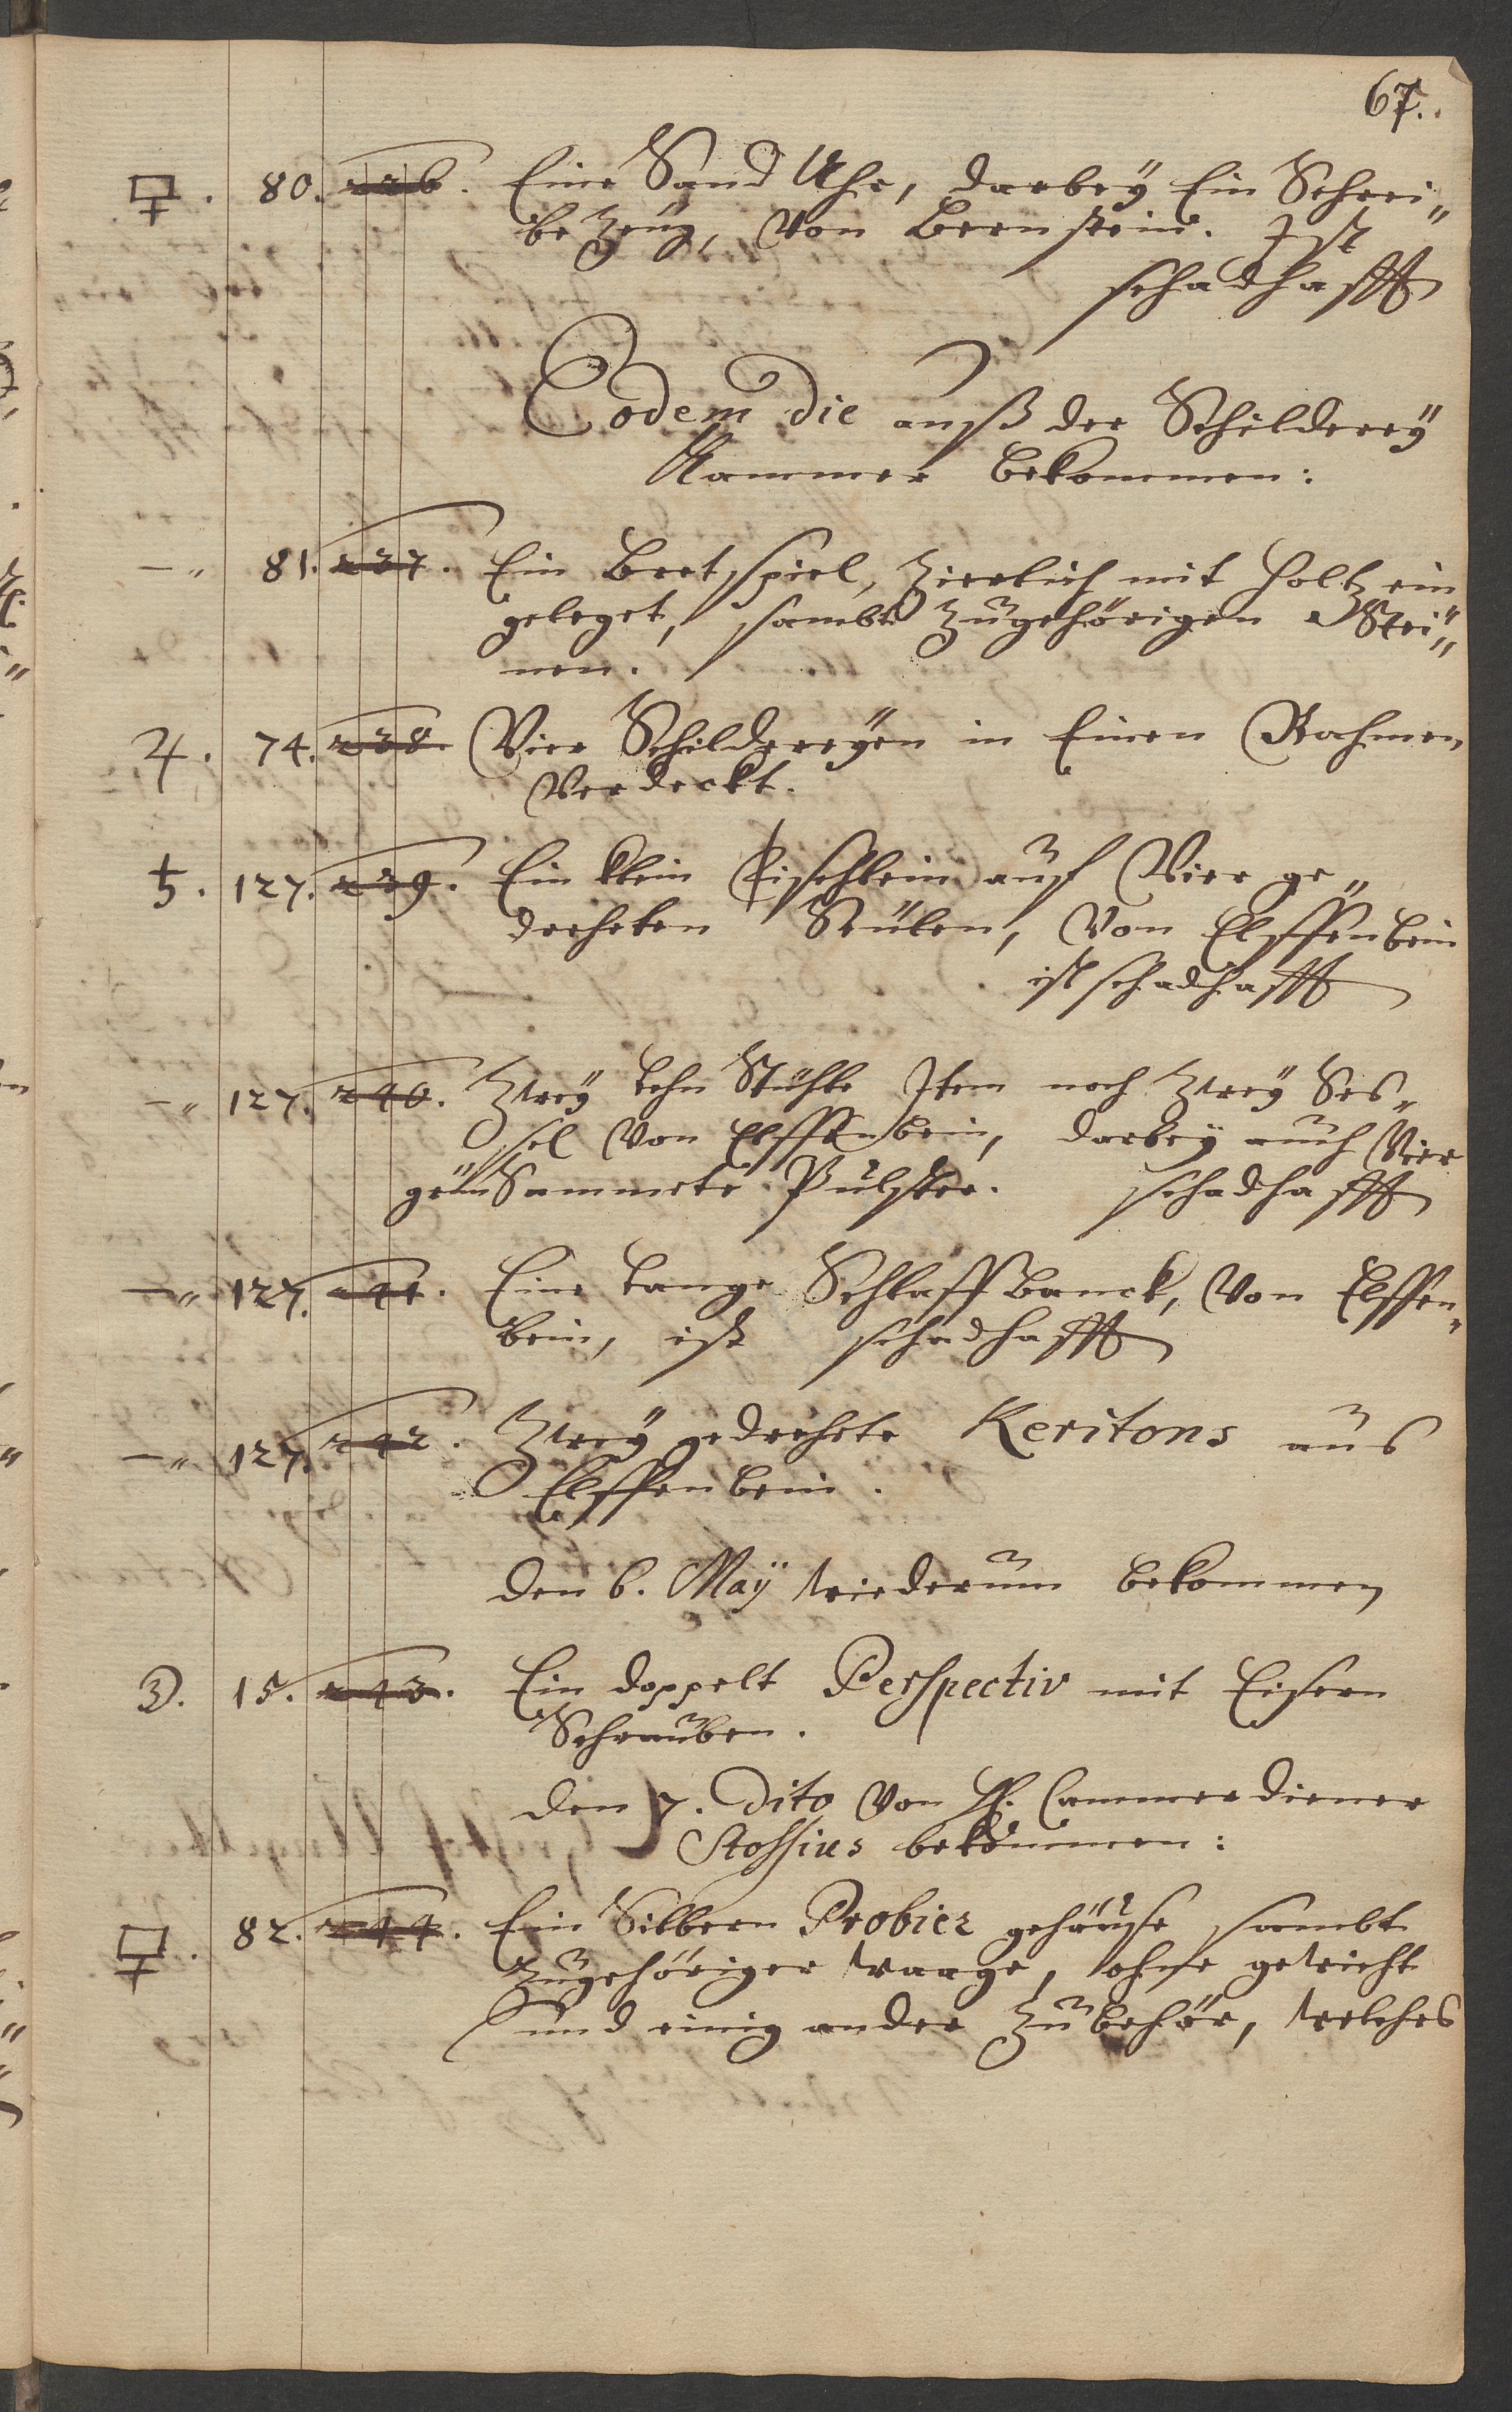 67.
80. 236. Eine Sand Uhr, darbeÿ Ein Schrei„
be Zeug, Von Bernstein. Ist
schadhafft
Eodem Die auß der Schildereÿ
Kammer bekommen:
—„ 81. 237. Ein Bret spiel, Zierlich mit Holtz ein„
geleget, sambt Zugehörigen Stei„
nen.
♃. 74. 238. Vier Schildereÿen in Einen Rahmen
Verdeckt.
♄. 127. 239. Ein klein Tischlein auf Vier ge„
dreheten Seulen, Von Elffenbein
ist schadhafft
—„ 127. 240. Zweÿ Lehn Stühle Item noch Zweÿ Ses„
sel Von Elffenbein, darbeÿ auch Vier
grün Sammete Pulster. schadhafft
—„ 127. 241. Eine Lange Schlaff Banck, Von Elffen„
bein, ist schadhafft
—„ 127. 242. Zweÿ gedrehete Keritons aus
Elffenbein.
den 6. Maÿ wiederum bekommen
☽. 15. 243. Ein doppelt Perspectiv mit Eisern
Schrauben.
den 7. Dito Von H. Cammerdiener
Stossius bekommen:
82. 244. Ein Silbern Probier gehäuse sambt
Zugehöriger waage, ohne gewicht
und einig ander Zubehör, welches